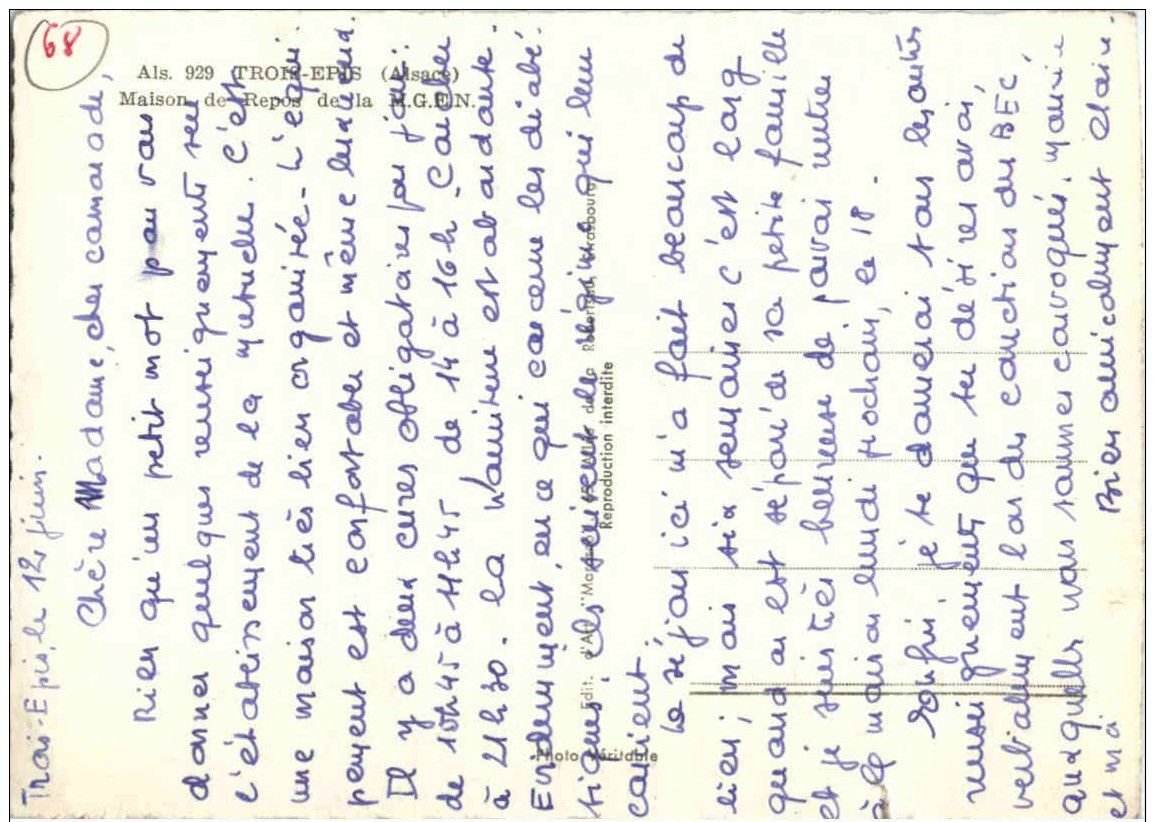 68
Als. 929 TROIS-EPIS (Alsace)
Maison de Repos de la M.G.E.N.
Trois-Epis, le 12 juin.
Chère Madame, cher camarade,
Rien qu'un petit mot pour vous
donner quelques renseignements sur
l'établissement de la mutuelle. C'est
une maison très bien organisée - L'équi-
pement est confortable et même luxueux.
Il y a deux cures obligatoires par jour:
de 10h45 à 11h45 de 14 à 16h - Coucher
à 21h30. La nourriture est abondante.
Evidemment, en ce qui concerne les diabé-
tiques, ils suivent le régime qui leur
convient
Le séjour ici m'a fait beaucoup de
bien; mais six semaines c'est long
quand on est séparé de sa petite famille
et je suis très heureuse de pouvoir rentrer
à la maison lundi prochain, le 18.
Enfin je te donnerai tous les autres
renseignements que tu désires avoir,
verbalement lors des corrections du BEC
auxquelles nous sommes convoqués, mari
et moi
Bien amicalement
Edit. d'Art
Strasbourg
Reproduction interdite
Photo véritable